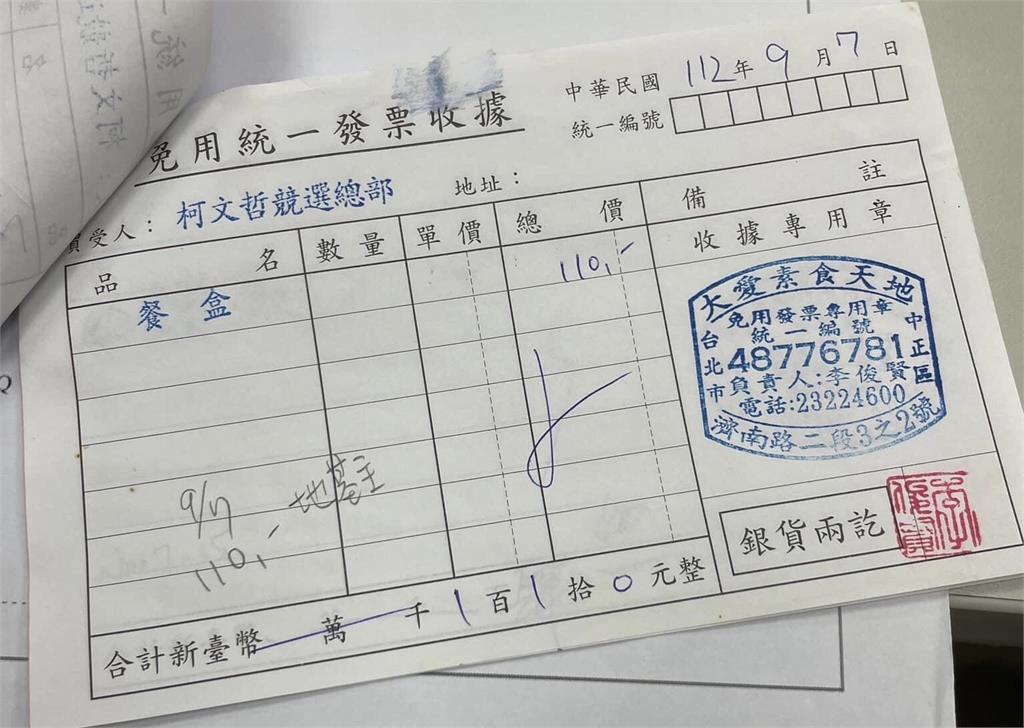 免用統一發票收據
中華民國 112年 9月 7日
統一編號
買受人：柯文哲競選總部 地址：
品名 數量 單價 總價 備註
餐盒 110,-
收據專用章
大愛素食天地
免用發票專用章
統一編號
48776781
負責人:李俊賢
電話:23224600
台北市
中正區
濟南路二段3之2號
9/7
110,-
銀貨兩訖
合計新臺幣 萬 千 1 百 1 拾 0 元整